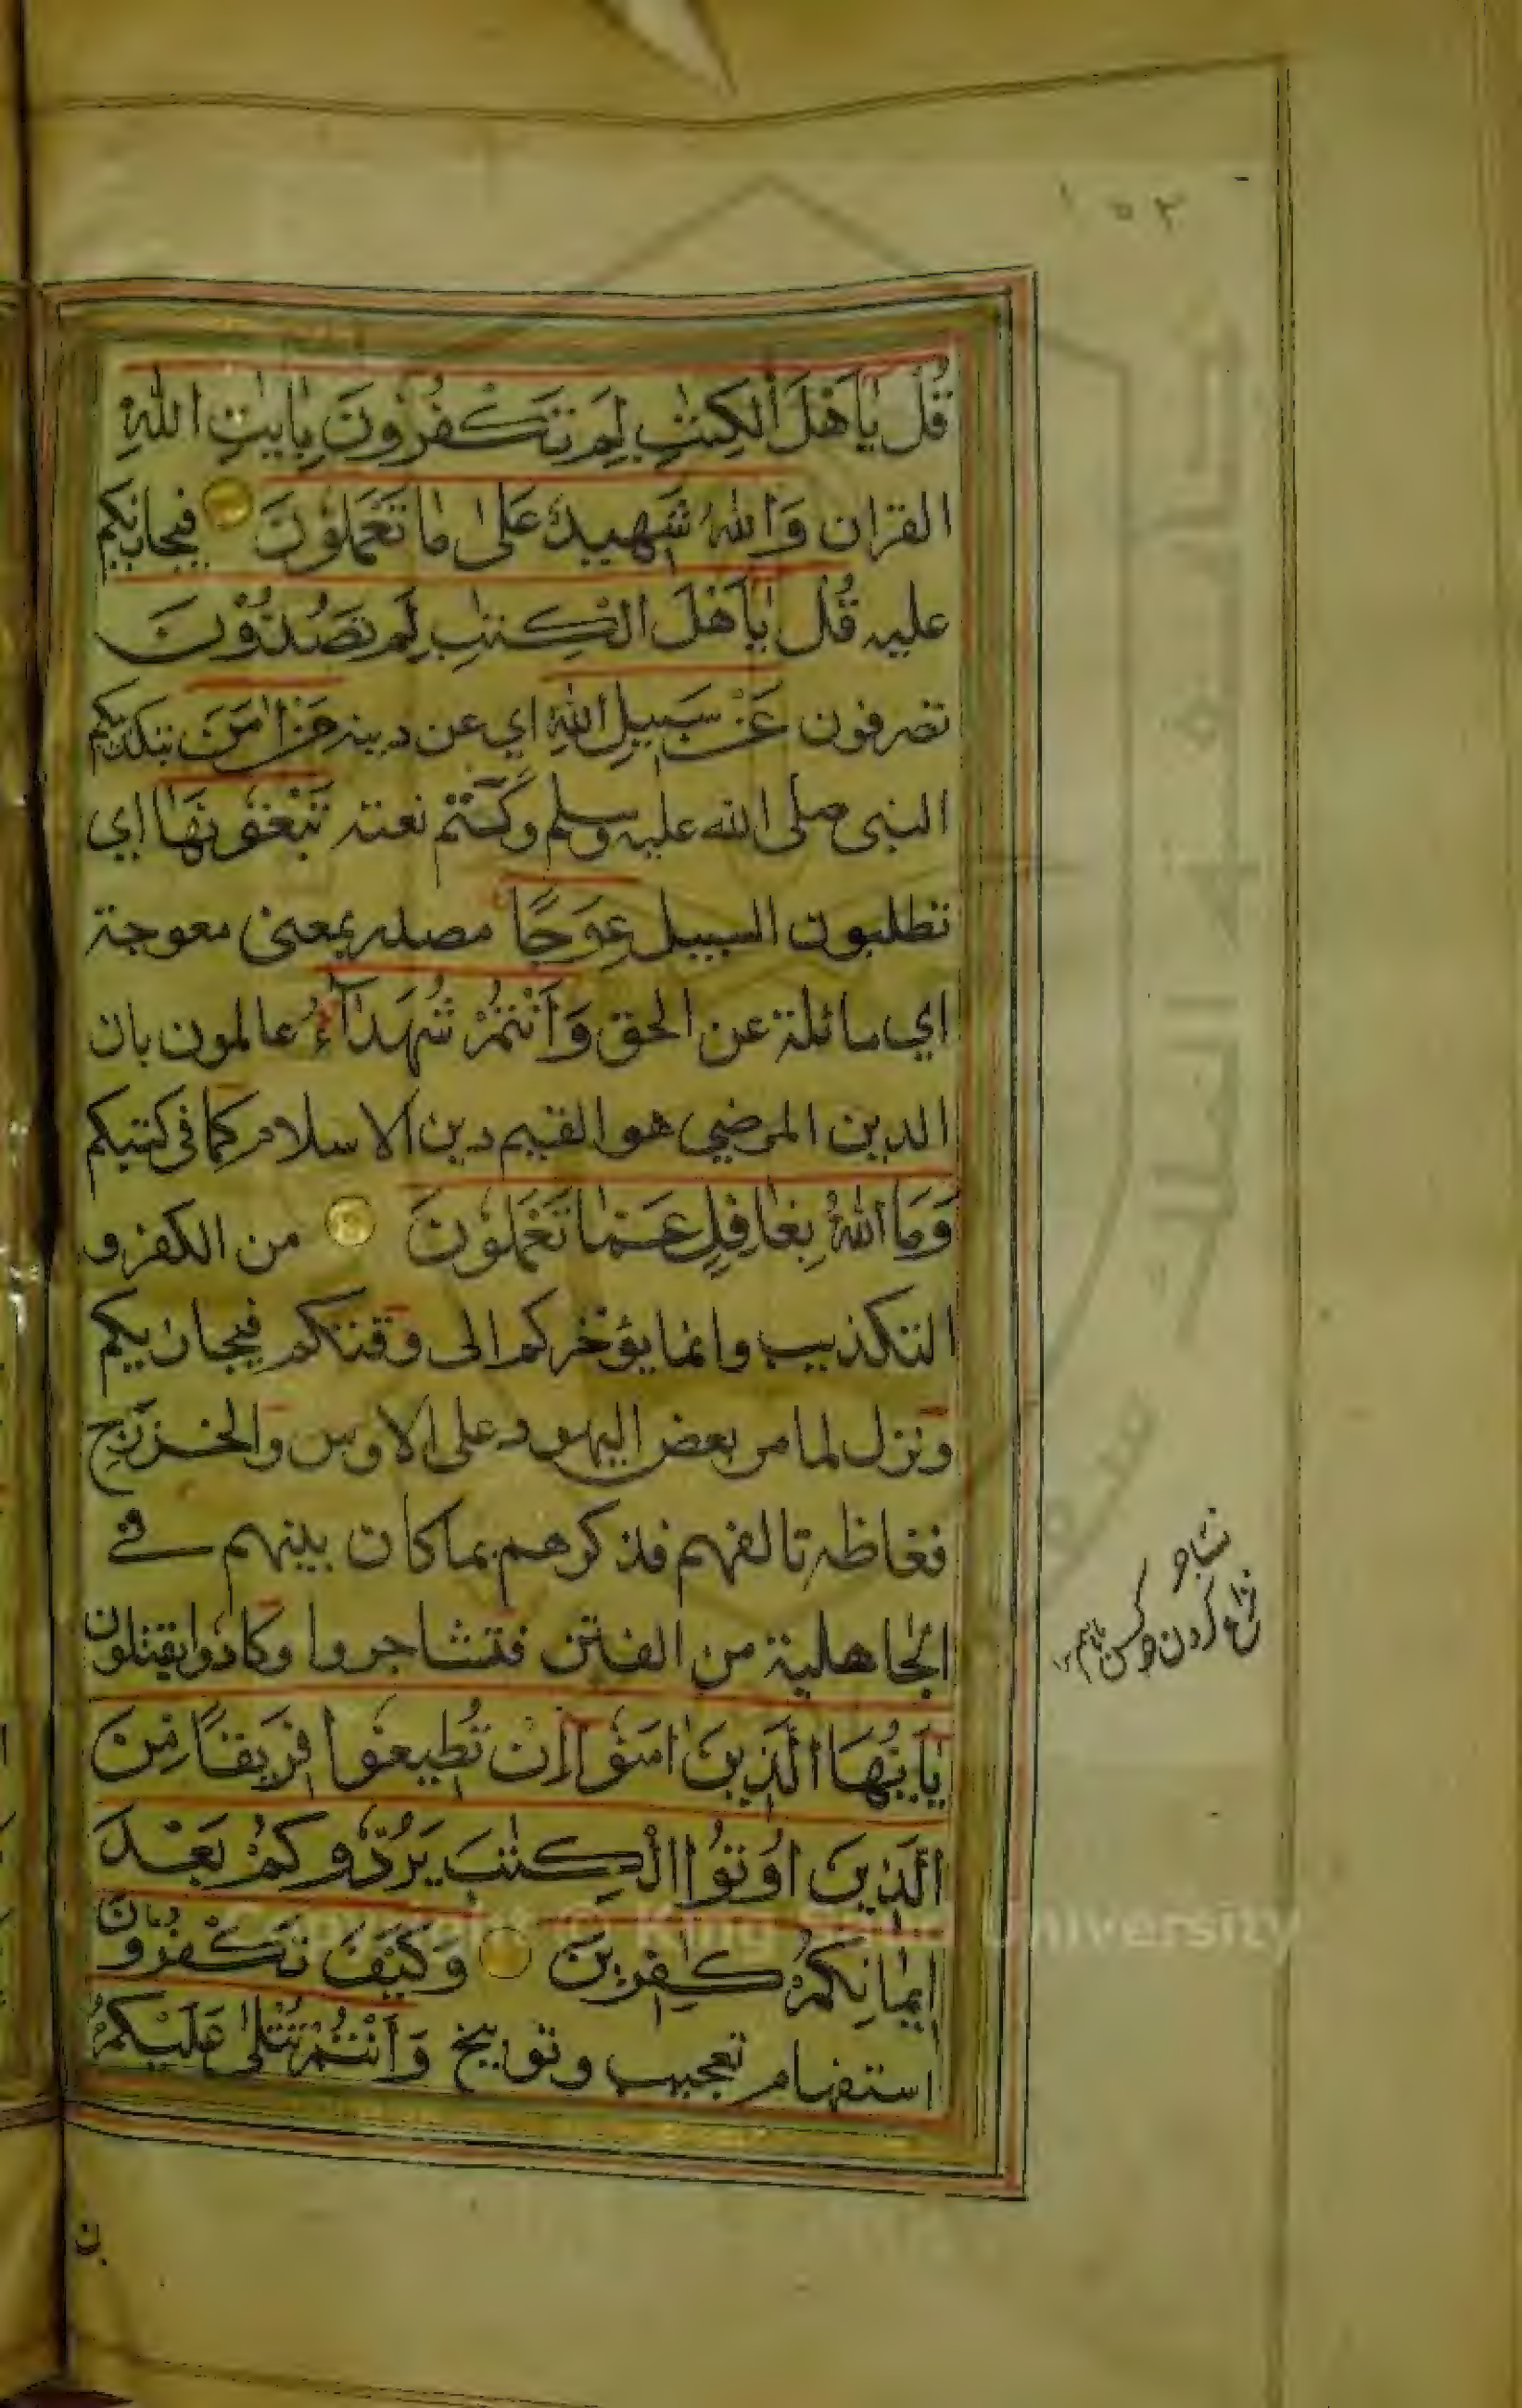 ١٥٢
قُلْ يٰۤاَهْلَ الْكِتٰبِ لِمَ تَكْفُرُوْنَ بِاٰيٰتِ اللّٰهِ
القران وَاللّٰهُ شَهِيْدٌ عَلٰى مَا تَعْمَلُوْنَ فيجازيكم
عليه قُلْ يٰۤاَهْلَ الْكِتٰبِ لِمَ تَصُدُّوْنَ
تصرفون عَنْ سَبِيْلِ اللّٰهِ اي عن دينه مَنْ اٰمَنَ بتكذيبكم
النبى صلى الله عليه وسلم وكتم نعته تَبْغُوْنَهَا اي
تطلبون السبيل عِوَجًا مصدر بمعنى معوجة
اي مائلة عن الحق وَاَنْتُمْ شُهَدَآءُ عالمون بان
الدين المرضي هو القيم دين الاسلام كما فى كتبكم
وَمَا اللّٰهُ بِغَافِلٍ عَمَّا تَعْمَلُوْنَ من الكفر و
التكذيب وانما يؤخركم الى وقتكم فيجازيكم
ونزل لما مر بعض اليهود على الاوس والخزرج
فغاظه تالفهم فذكرهم بما كان بينهم في
الجاهلية من الفتن فتشاجروا وكادوا يقتتلون
يٰۤاَيُّهَا الَّذِيْنَ اٰمَنُوْۤا اِنْ تُطِيْعُوْا فَرِيْقًا مِّنَ
الَّذِيْنَ اُوْتُوا الْكِتٰبَ يَرُدُّوْكُمْ بَعْدَ
اِيْمَانِكُمْ كٰفِرِيْنَ وَكَيْفَ تَكْفُرُوْنَ
استفهام تعجيب وتوبيخ وَاَنْتُمْ تُتْلٰى عَلَيْكُمْ
Copyright © King Saud University